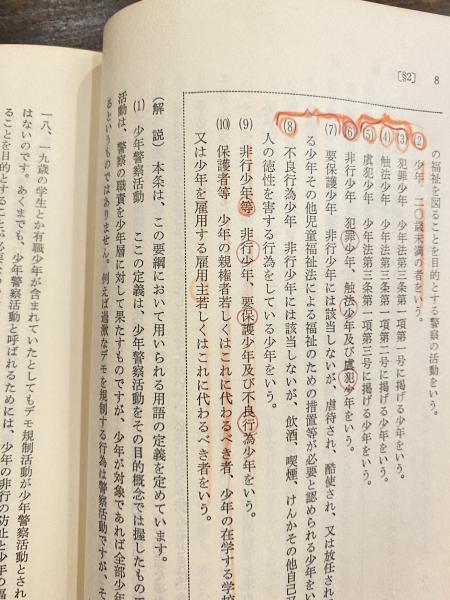 〔§2〕 8
の福祉を図ることを目的とする警察の活動をいう。
(2) 少年 二〇歳未満の者をいう。
(3) 犯罪少年 少年法第三条第一項第一号に掲げる少年をいう。
(4) 触法少年 少年法第三条第一項第二号に掲げる少年をいう。
(5) 虞犯少年 少年法第三条第一項第三号に掲げる少年をいう。
(6) 非行少年 犯罪少年、触法少年及び虞犯少年をいう。
(7) 要保護少年 非行少年には該当しないが、虐待され、酷使され、又は放任されて
る少年その他児童福祉法による福祉のための措置等が必要と認められる少年をい
(8) 不良行為少年 非行少年には該当しないが、飲酒、喫煙、けんかその他自己又
人の徳性を害する行為をしている少年をいう。
(9) 非行少年等 非行少年、要保護少年及び不良行為少年をいう。
(10) 保護者等 少年の親権者若しくはこれに代わるべき者、少年の在学する学校
又は少年を雇用する雇用主若しくはこれに代わるべき者をいう。
(解 説) 本条は、この要綱において用いられる用語の定義を定めています。
(1) 少年警察活動 ここの定義は、少年警察活動をその目的概念では握したもので
活動は、警察の職責を少年層に対して果たすものですが、少年が対象であれば全部少年
るというものではありません。例えば過激なデモを規制する行為は警察活動ですが、そ
一八、一九歳の学生とか有職少年が含まれていたとしてもデモ規制活動が少年警察活動とされ
はないのです。あくまでも、少年警察活動と呼ばれるためには、少年の非行の防止と少年の福
ることを目的とすることが必要なの